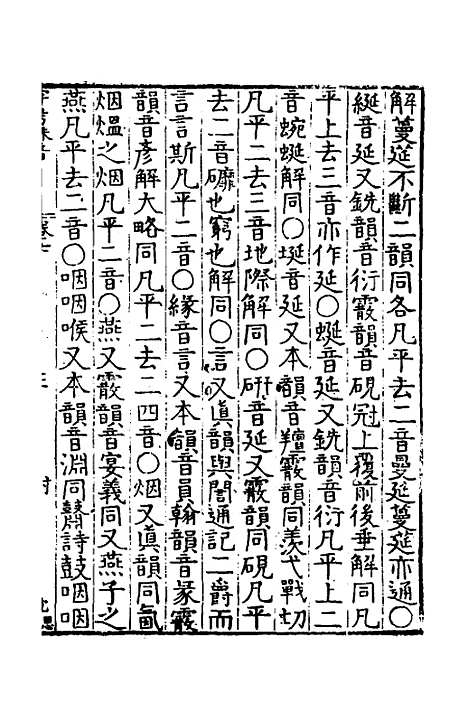 解蔓莚不斷二韻同各凡平去二音曼延蔓莚亦通〇
綖音延又銑韻音衍霰韻音硯冠上覆前後垂解同凡
平上去三音亦作延〇蜒音延又銑韻音衍凡平上二
音蜿蜒解同〇埏音延又本韻音羶霰韻同羨弋戰切
凡平二去三音地際解同〇硏音延又霰韻同硯凡平
去二音礳也窮也解同〇言又眞韻與誾通記二爵而
言言斯凡平二音〇緣音言又本韻音員翰韻音彖霰
韻音彥解大略同凡平二去二四音〇烟又眞韻同氤
烟熅之烟凡平二音〇燕又霰韻音宴義同又燕子之
燕凡平去二音〇咽咽喉又本韻音淵同鼘詩鼓咽咽